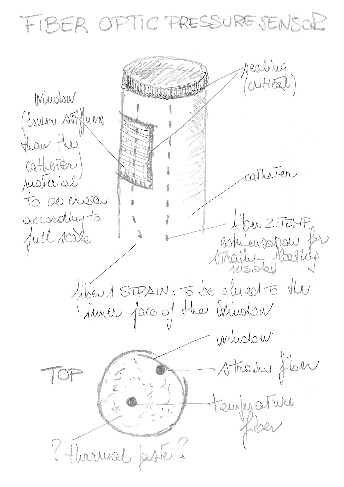 FIBER OPTIC PRESSURE SENSOR
sealing
(critical)
window
(lower stiffness
than the
catheter)
material
to be chosen
according to
full scale
catheter
fiber 2: TEMP.
compensation for
strain - floating
inside
fiber 1 STRAIN: to be glued to the
inner face of the window
TOP
window
strain fiber
temperature
fiber
? thermal paste ?